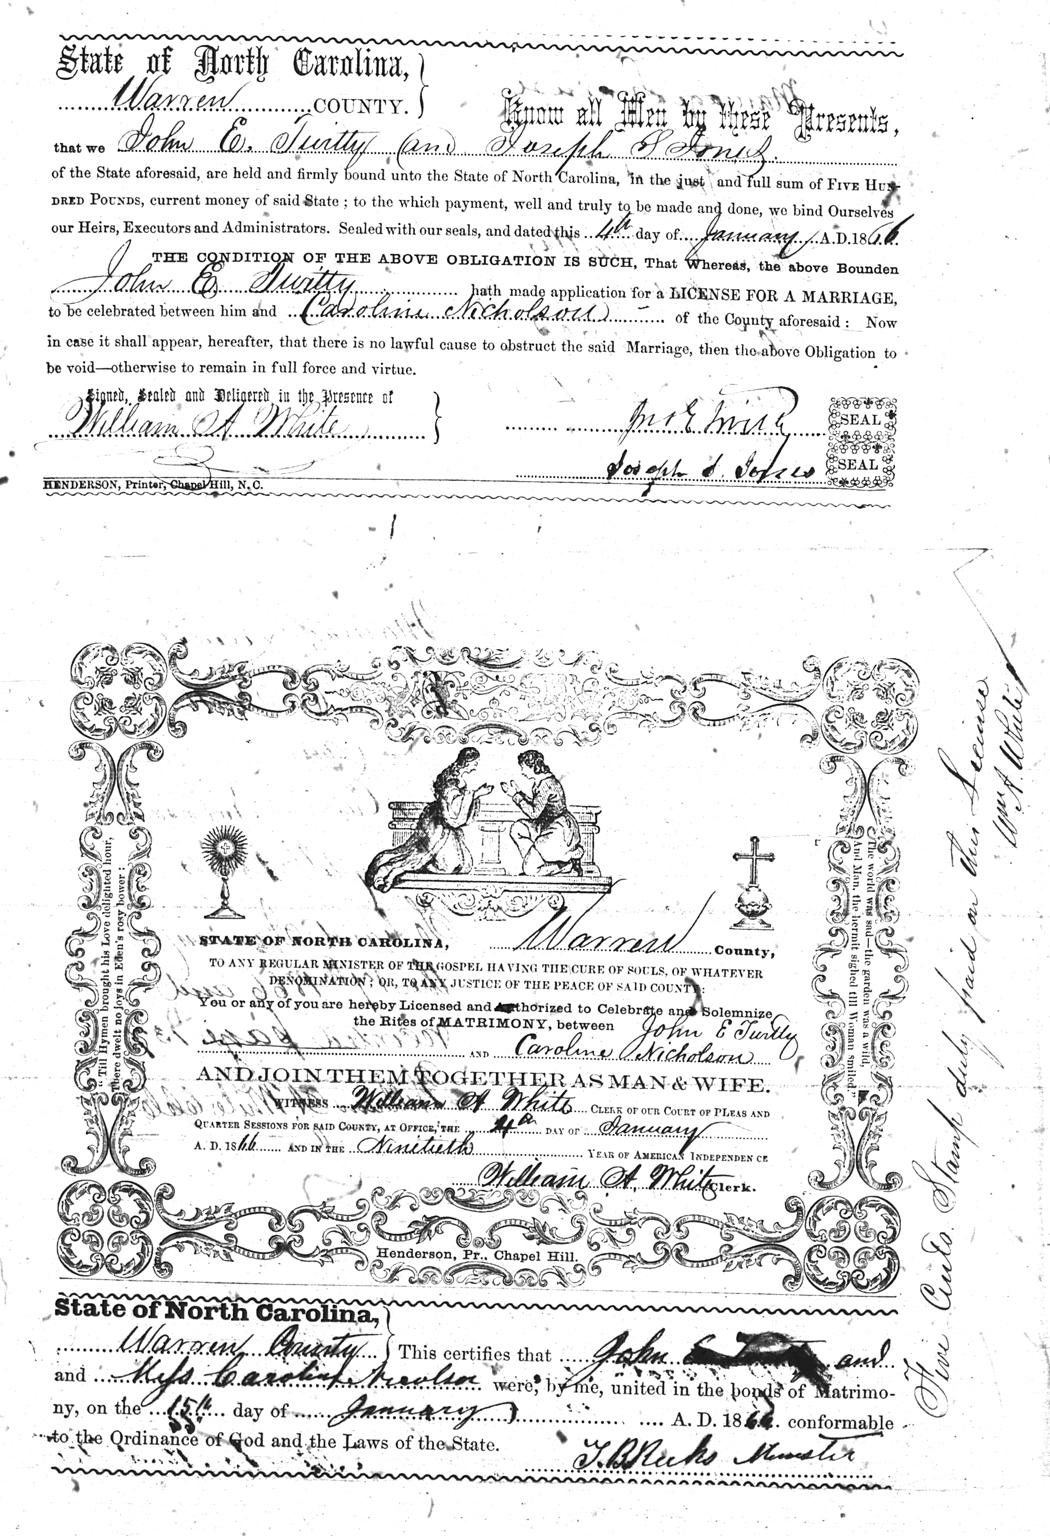 State of North Carolina,
Warren COUNTY.
Know all Men by these Presents,
that we John E. Twitty and Joseph S Jones.
of the State aforesaid, are held and firmly bound unto the State of North Carolina, in the just and full sum of FIVE HUN-
DRED POUNDS, current money of said State; to the which payment, well and truly to be made and done, we bind Ourselves
our Heirs, Executors and Administrators. Sealed with our seals, and dated this 4th day of January A.D. 1866.
THE CONDITION OF THE ABOVE OBLIGATION IS SUCH, That Whereas, the above Bounden
John E Twitty hath made application for a LICENSE FOR A MARRIAGE,
to be celebrated between him and Caroline Nicholson of the County aforesaid: Now
in case it shall appear, hereafter, that there is no lawful cause to obstruct the said Marriage, then the above Obligation to
be void—otherwise to remain in full force and virtue.
Signed, Sealed and Delivered in the Presence of
William A White
Jno E Twitty SEAL
Joseph S. Jones SEAL
HENDERSON, Printer, Chapel Hill, N. C.
"Till Hymen brought his Love delighted hour,
There dwelt no joys in Eden's rosy bower:
The world was sad—the garden was a wild,
And Man, the hermit sighed till Woman smiled."
STATE OF NORTH CAROLINA, Warren County,
TO ANY REGULAR MINISTER OF THE GOSPEL HAVING THE CURE OF SOULS, OF WHATEVER
DENOMINATION; OR, TO ANY JUSTICE OF THE PEACE OF SAID COUNTY:
You or any of you are hereby Licensed and Authorized to Celebrate and Solemnize
the Rites of MATRIMONY, between John E Twitty
AND Caroline Nicholson
AND JOIN THEM TOGETHER AS MAN & WIFE.
WITNESS William A White CLERK OF OUR COURT OF PLEAS AND
QUARTER SESSIONS FOR SAID COUNTY, AT OFFICE, THE 4th DAY OF January
A. D. 1866 AND IN THE Ninetieth YEAR OF AMERICAN INDEPENDENCE
William A. White Clerk.
Henderson, Pr., Chapel Hill.
Five Cents Stamp duly paid on this License
Wm A White
State of North Carolina,
Warren County
This certifies that John E and
and Miss Caroline Nicolson were, by me, united in the bonds of Matrimo-
ny, on the 15th day of January A. D. 1866 conformable
to the Ordinance of God and the Laws of the State.
T. B Reeks Minister